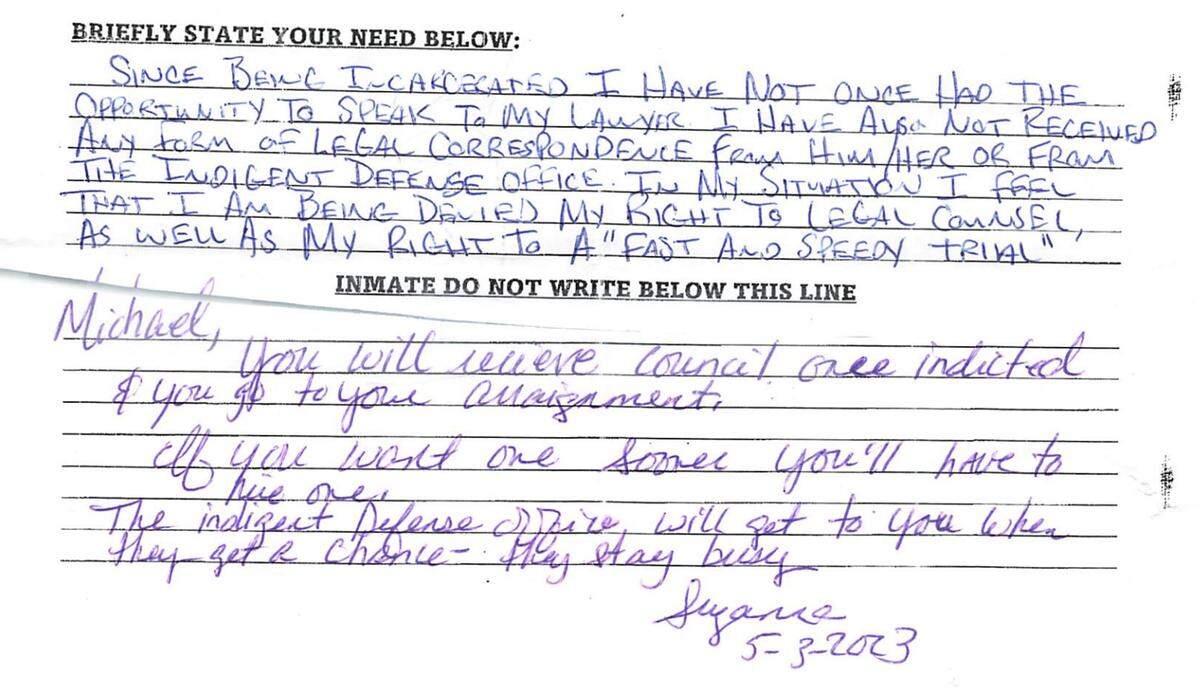 BRIEFLY STATE YOUR NEED BELOW:
SINCE BEING INCARCERATED I HAVE NOT ONCE HAD THE
OPPORTUNITY TO SPEAK TO MY LAWYER. I HAVE ALSO NOT RECEIVED
ANY FORM OF LEGAL CORRESPONDENCE FROM HIM/HER OR FROM
THE INDIGENT DEFENSE OFFICE. IN MY SITUATION I FEEL
THAT I AM BEING DENIED MY RIGHT TO LEGAL COUNSEL,
AS WELL AS MY RIGHT TO A "FAST AND SPEEDY TRIAL"
INMATE DO NOT WRITE BELOW THIS LINE
Michael,
You will recieve council once indicted
& you go to your arraignment.
If you want one sooner you'll have to
hire one.
The indigent Defense office will get to you when
they get a chance - they stay busy
Suzanne
5-3-2023